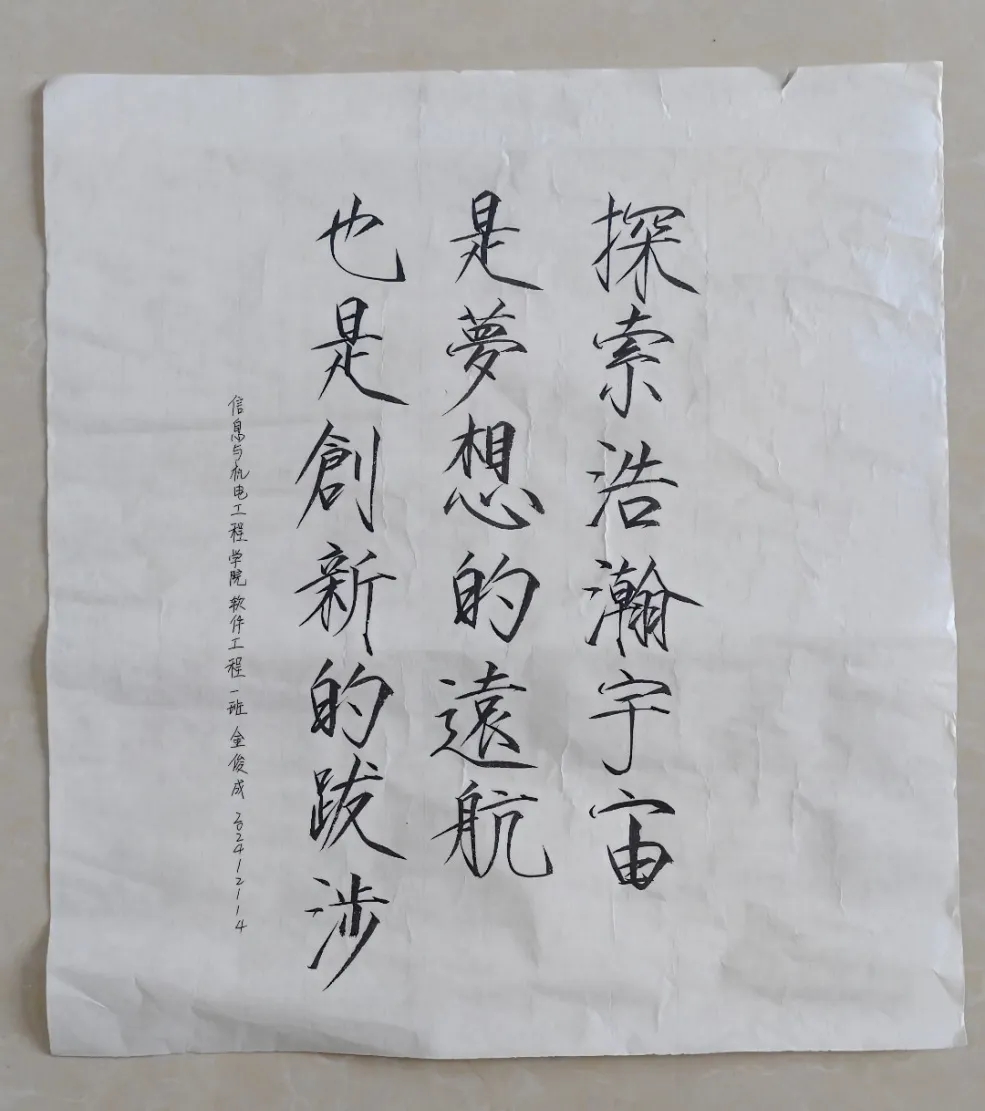 探索浩瀚宇宙
是夢想的遠航
也是創新的跋涉
信息与机电工程学院 软件工程一班 金俊成 202412114